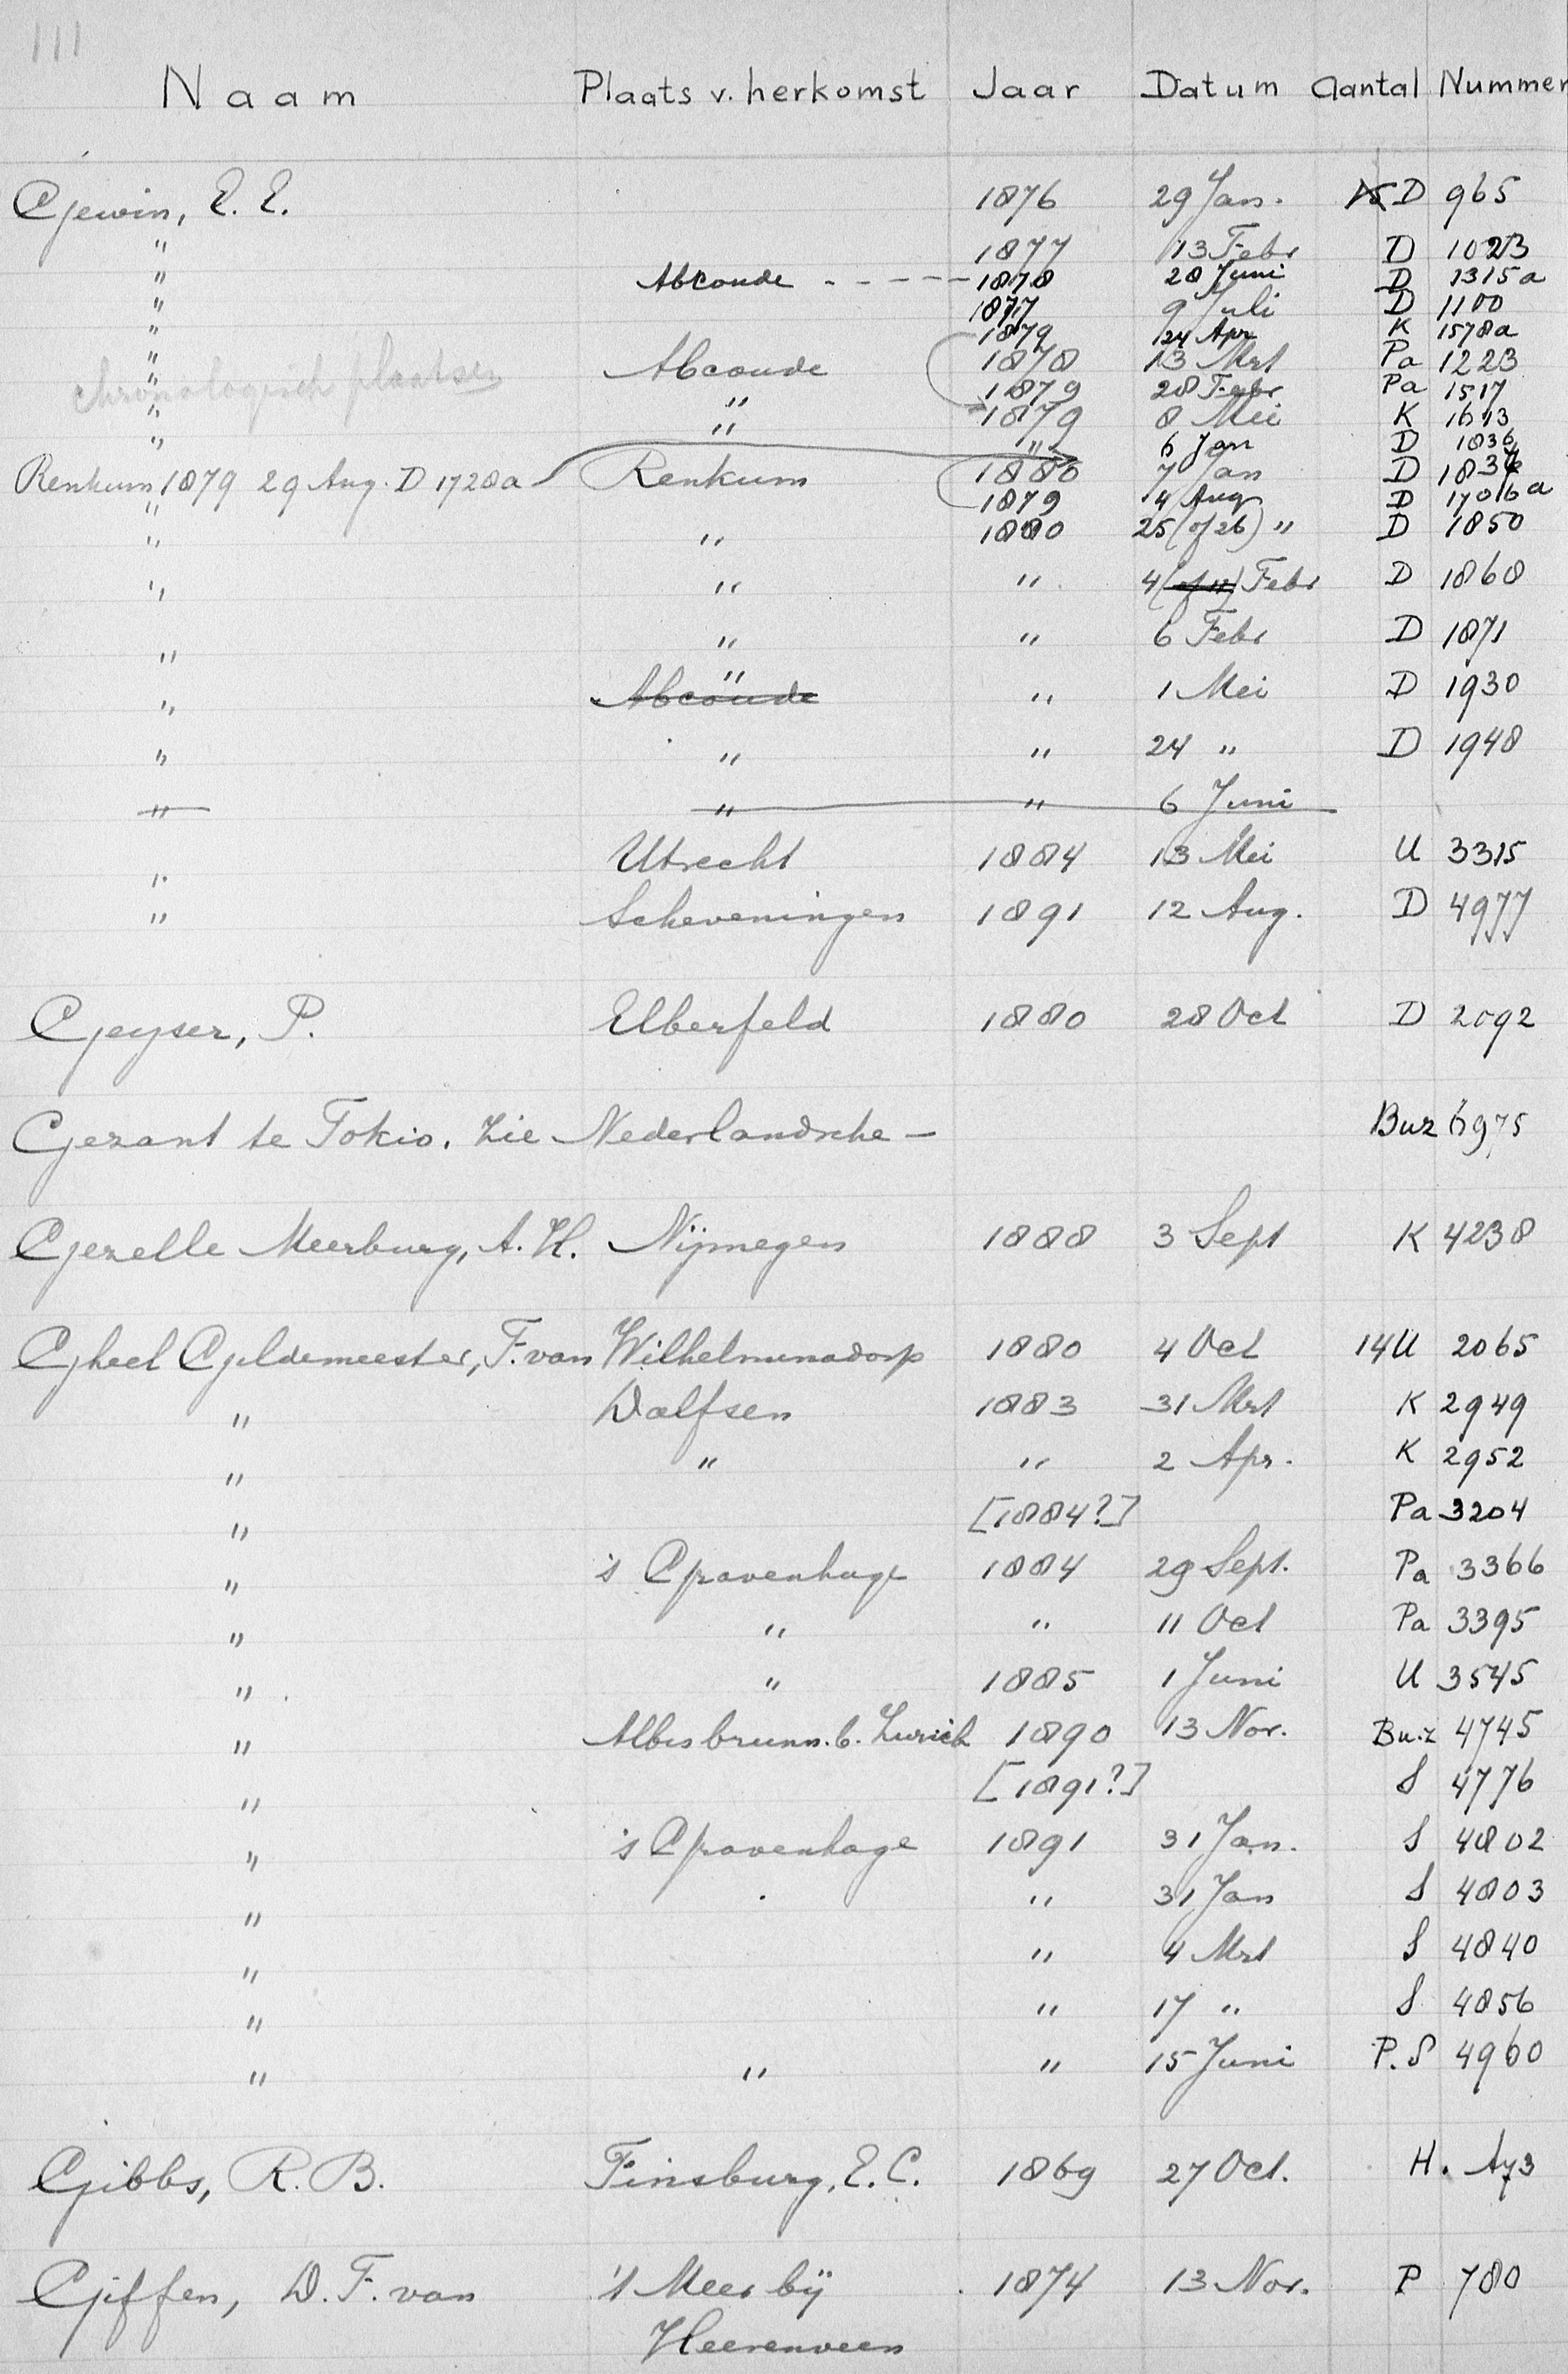 111
Naam Plaats v. herkomst Jaar Datum Aantal Nummer
Gewin, E. E. 1876 29 Jan. D 965
" 1877 13 Febr D 1023
" Abcoude - - - - 1878 28 Juni D 1315a
" 1877 9 Juli D 1100
" 1879 24 Apr K 1578a
" Abcoude 1878 13 Mrt Pa 1223
chronologisch plaatsen
" " 1879 28 Febr Pa 1517
" " 1879 8 Mei K 1613
" " 6 Jan D 1836
Renkum 1879 29 Aug. D 1728a Renkum 1880 7 Jan D 1837
" 1879 4 Aug D 1706a
" " 1880 25 (of 26) " D 1850
" " " 4 (of 11) Febr D 1868
" " " 6 Febr D 1871
" Abcoude " " 1 Mei D 1930
" " " 24 " D 1948
" " " 6 Juni
" Utrecht 1884 13 Mei U 3315
" Scheveningen 1891 12 Aug. D 4977
Geyser, P. Elberfeld 1880 28 Oct D 2092
Gezant te Tokio. Zie Nederlandsche - Buz 6975
Gezelle Meerburg, A. H. Nijmegen 1888 3 Sept K 4238
Gheel Gildemeester, F. van Wilhelminadorp 1880 4 Oct 14 U 2065
" Dalfsen 1883 31 Mrt K 2949
" " " 2 Apr. K 2952
" [1884?] Pa 3204
" 's Gravenhage 1884 29 Sept. Pa 3366
" " " 11 Oct Pa 3395
" " 1885 1 Juni U 3545
" Albisbrunn. b. Zurich 1890 13 Nov. Bu.z 4745
" [1891?] S 4776
" 's Gravenhage 1891 31 Jan. S 4802
" " 31 Jan S 4803
" " 4 Mrt S 4840
" " 17 " S 4856
" " " 15 Juni P. S 4960
Gibbs, R. B. Finsburg, E. C. 1869 27 Oct. H.
Giffen, D. F. van 't Meer bij 1874 13 Nov. P 780
Heerenveen